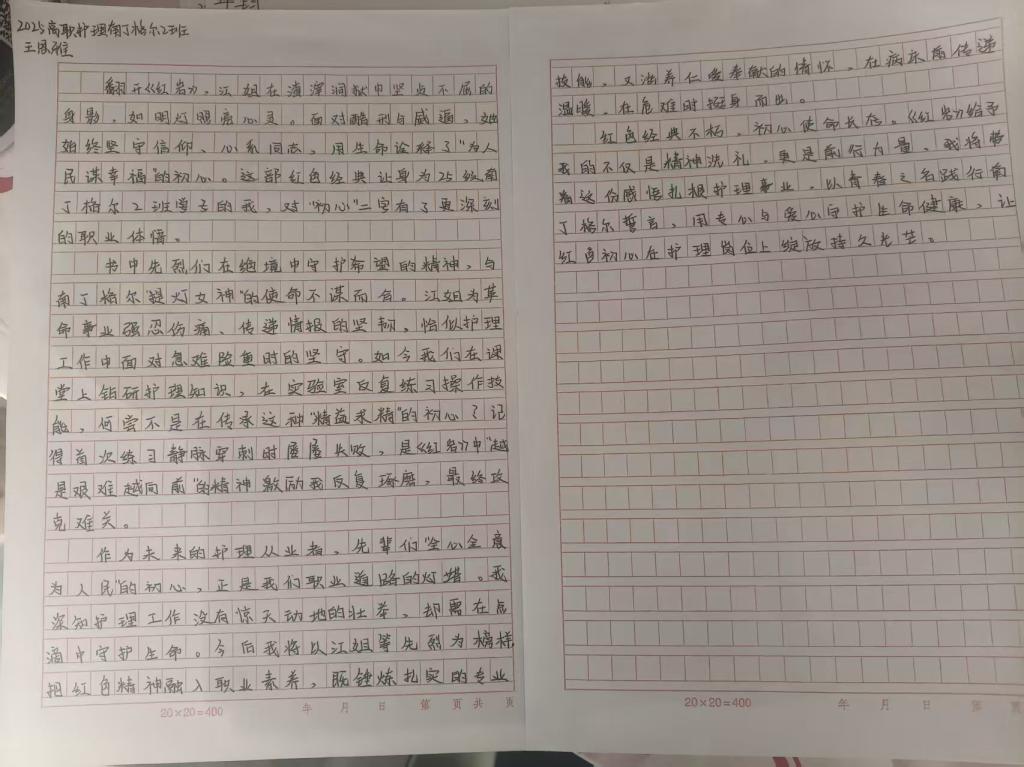 2025高职护理南丁格尔2班
王恩雅
翻开《红岩》，江姐在渣滓洞狱中坚贞不屈的
身影，如明灯照亮心灵。面对酷刑与威逼，她
始终坚守信仰、心系同志，用生命诠释了“为人
民谋幸福”的初心。这部红色经典让身为25级南
丁格尔2班学子的我，对“初心”二字有了更深刻
的职业体悟。
书中先烈们在绝境中守护希望的精神，与
南丁格尔“提灯女神”的使命不谋而合。江姐为革
命事业强忍伤痛、传递情报的坚韧，恰似护理
工作中面对急难险重时的坚守。如今我们在课
堂上钻研护理知识，在实验室反复练习操作技
能，何尝不是在传承这种“精益求精”的初心？记
得首次练习静脉穿刺时屡屡失败，是《红岩》中“越
是艰难越向前”的精神激励我反复琢磨，最终攻
克难关。
作为未来的护理从业者，先辈们“全心全意
为人民”的初心，正是我们职业道路的灯塔。我
深知护理工作没有惊天动地的壮举，却需在点
滴中守护生命。今后我将以江姐等先烈为榜样
把红色精神融入职业素养，既锤炼扎实的专业
20×20=400 年 月 日 第 页 共 页
技能，又滋养仁爱奉献的情怀，在病床前传递
温暖，在危难时挺身而出。
红色经典不朽，初心使命长存。《红岩》给予
我的不仅是精神洗礼，更是前行力量。我将带
着这份感悟扎根护理事业，以青春之名践行南
丁格尔誓言，用专心与爱心守护生命健康，让
红色初心在护理岗位上绽放持久光芒。
20×20=400 年 月 日 第 页